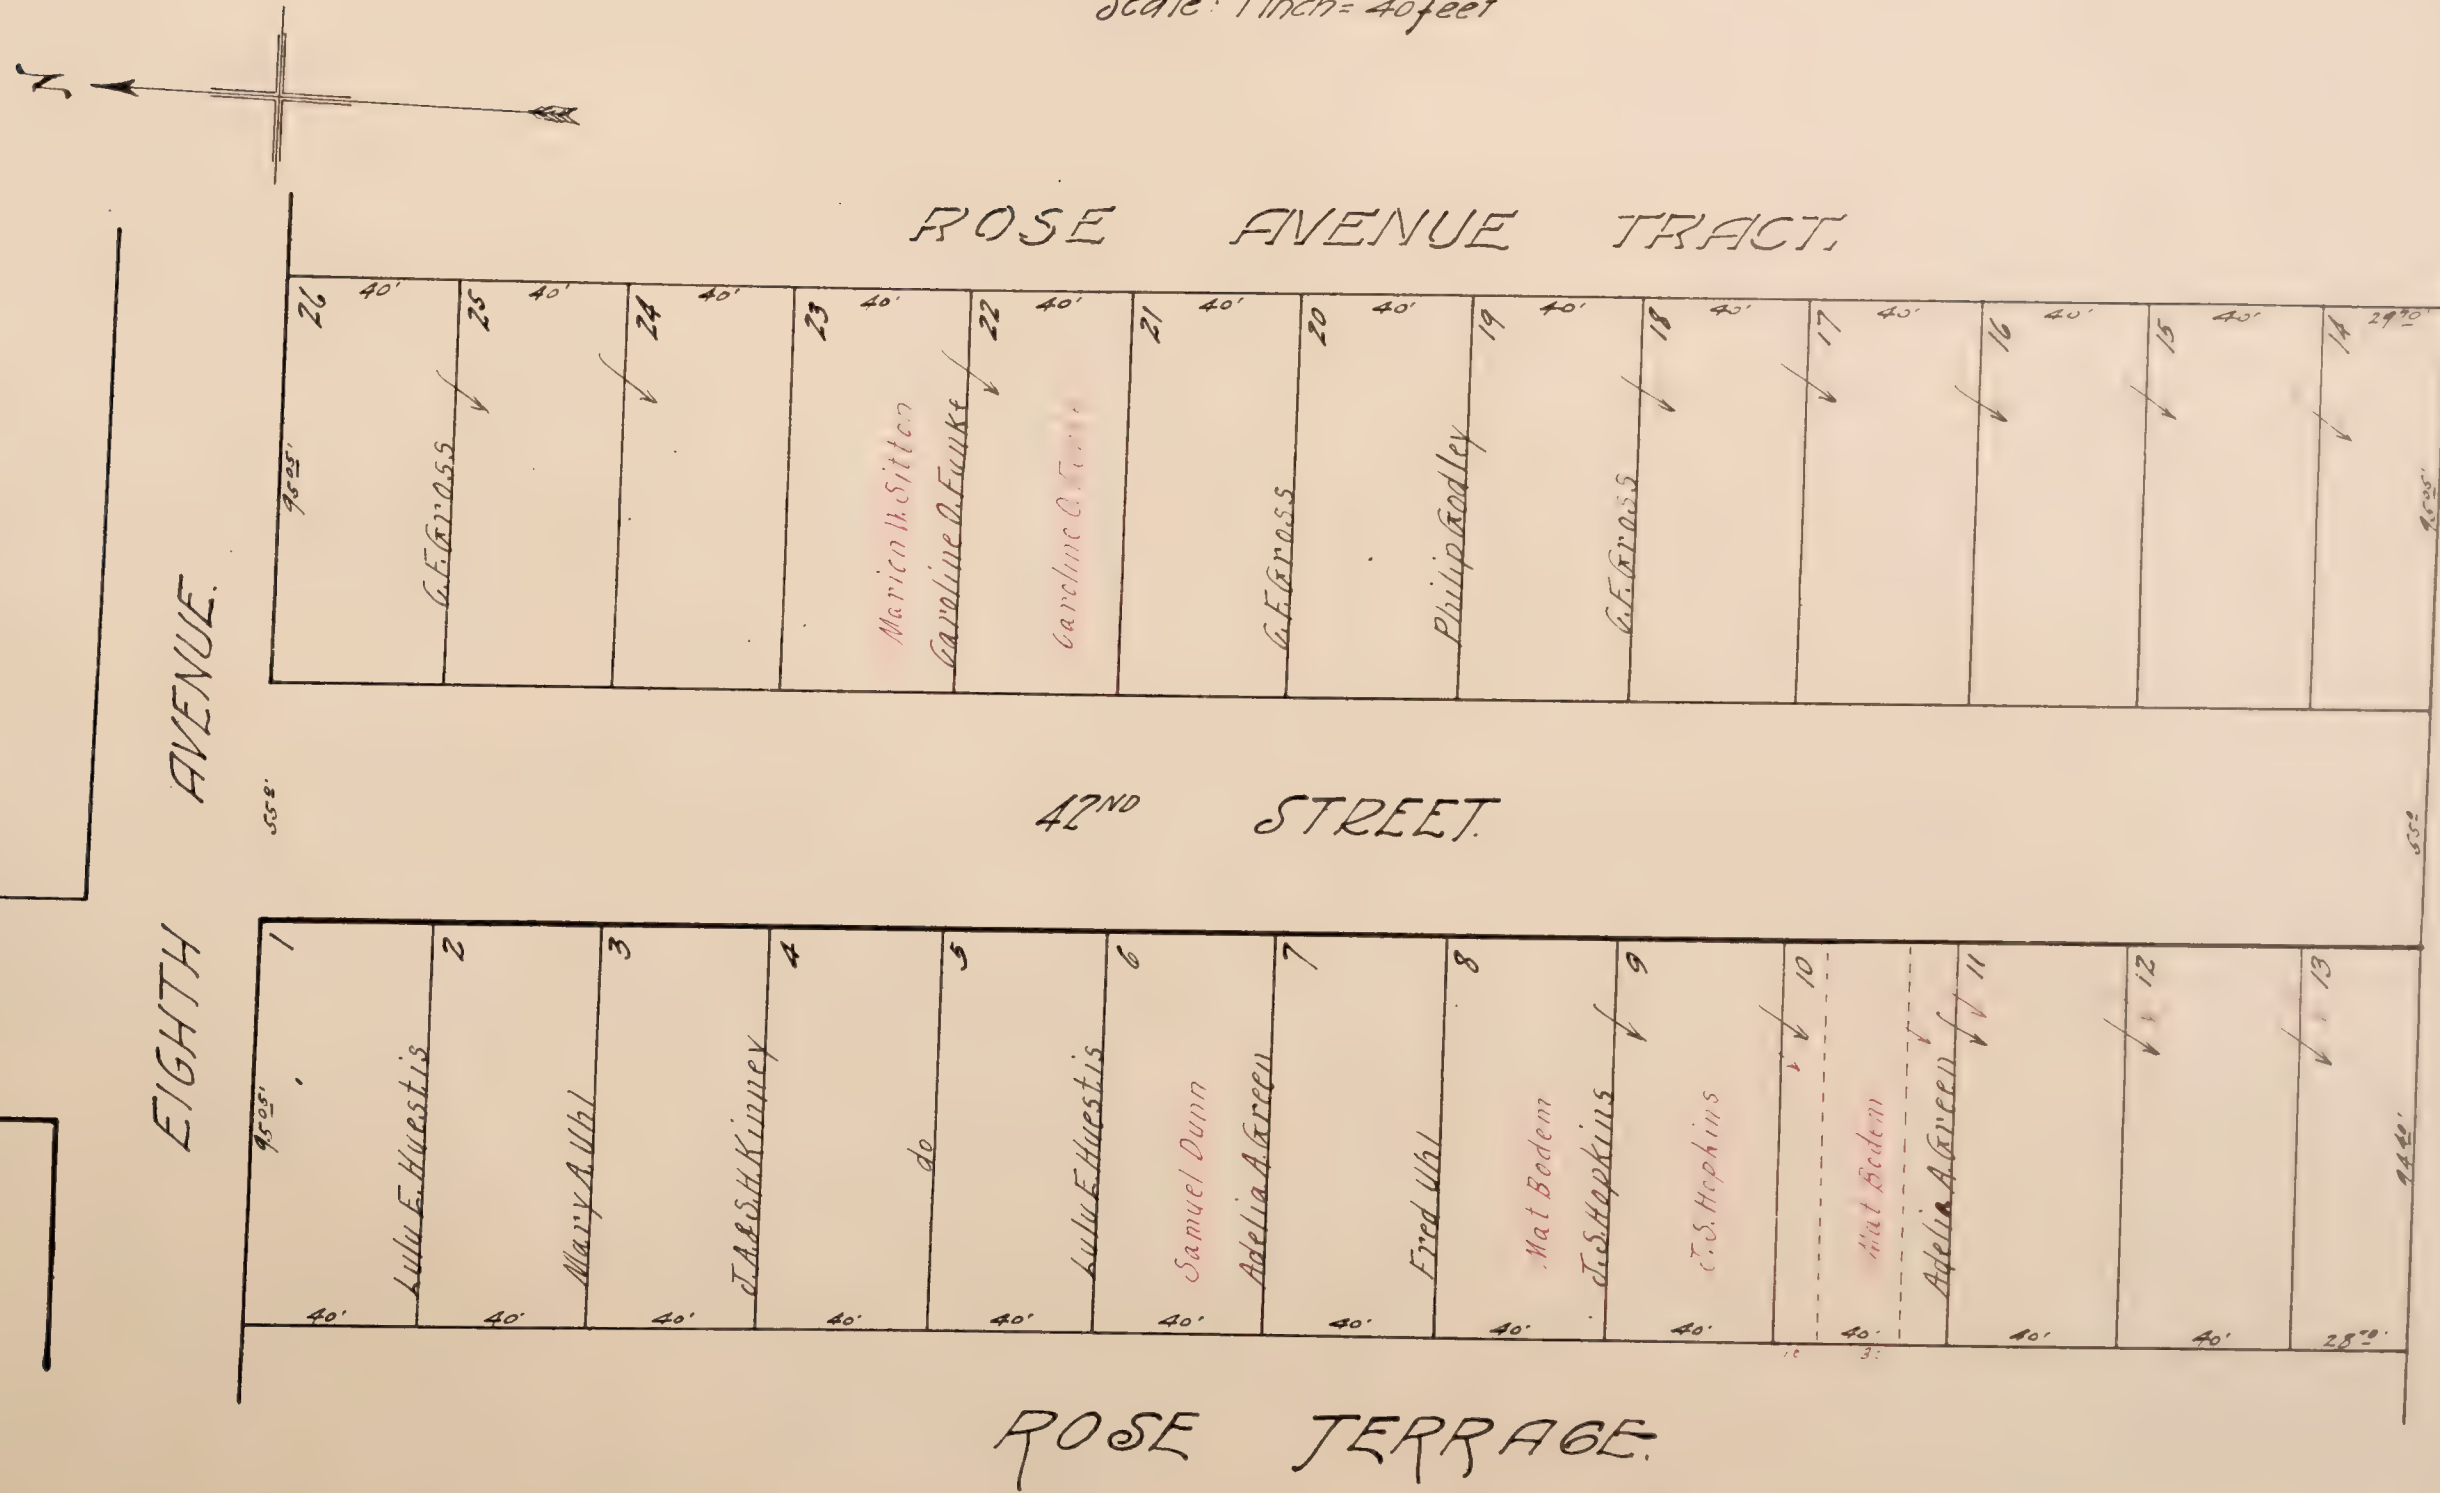 Scale: 1 inch = 40 feet
N
ROSE AVENUE TRACT.
26 40' 25 40' 24 40' 23 40' 22 40' 21 40' 20 40' 19 40' 18 40' 17 40' 16 40' 15 40' 14 29 90'
95 05'
C.F. Gross
Marion W. Sitton
Caroline O. Funke
Caroline O.
C.F. Gross
Philip Godley
C.F. Gross
95 05'
EIGHTH AVENUE.
55 0'
42ND STREET.
55 0'
1 2 3 4 5 6 7 8 9 10 11 12 13
95 05'
Lulu E. Huestis
Mary A. Uhl
J.A. & S.H. Kinney
do
Lulu E. Huestis
Samuel Dunn
Adelia A. Green
Fred Uhl
Mat Bodem
J.S. Hopkins
J.S. Hopkins
Mat Bodem
Adelia A. Green
94 40'
40' 40' 40' 40' 40' 40' 40' 40' 40' 40' 40' 40' 28 70'
ROSE TERRACE.